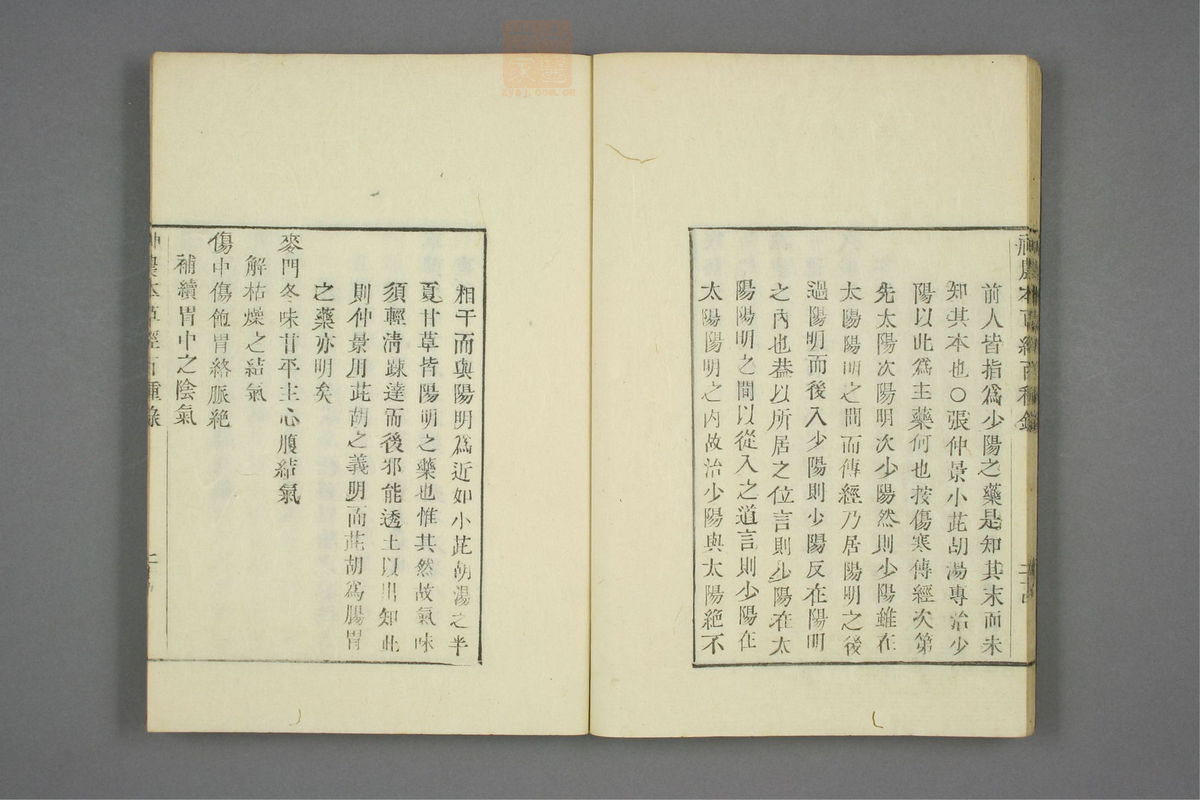 前人皆指爲少陽之藥是知其末而未
知其本也○張仲景小茈胡湯專治少
陽以此爲主藥何也按傷寒傳經次第
先太陽次陽明次少陽然則少陽雖在
太陽陽明之間而傳經乃居陽明之後
過陽明而後入少陽則少陽反在陽明
之內也葢以所居之位言則少陽在太
陽陽明之間以從入之道言則少陽在
太陽陽明之內故治少陽與太陽絶不
相干而與陽明爲近如小茈胡湯之半
夏甘草皆陽明之藥也惟其然故氣味
須輕清疎達而後邪能透土以出知此
則仲景用茈胡之義明而茈胡爲腸胃
之藥亦明矣
麥門冬味甘平主心腹結氣
解枯燥之結氣
傷中傷飽胃絡脈絶
補續胃中之陰氣